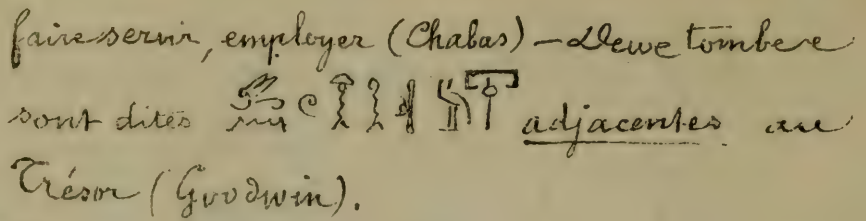 faire servir, employer (Chabas) – Deux tombes
sont dites adjacentes au
Trésor (Goodwin).